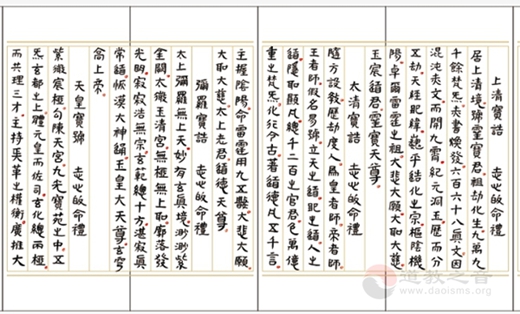 上清寶誥 志心皈命禮
居上清境號靈寶君祖劫化生九萬九
千餘梵炁赤書煥發六百六十八真文因
混沌赤文而開九霄紀元洞玉歷而分
五劫天經地緯巍乎統化之宗樞陰機
陽卓爾雷霆之祖大悲大願大聖大慈
玉宸道君靈寶天尊
太清寶誥 志心皈命禮
隨方設教歷劫度人為皇者師帝者師
王者師假名易號立天之道地之道人之
道隱聖顯凡總千二百之官君包萬億
重之梵炁化行今古著道德凡五千言
主握陰陽命雷霆用九五數大悲大願
大聖大慈太上老君道德天尊
彌羅寶誥 志心皈命禮
太上彌羅無上天妙有玄真境渺渺紫
金闕太微玉清宮無極無上聖廓落發
光明寂寂浩無宗玄範總十方湛寂真
常道恢漠大神通玉皇大天尊玄穹
高上帝
天皇寶號 志心皈命禮
紫微宸極勾陳天宮九光寶苑之中五
炁玄都之上體元皇而佐司玄化總兩極
而共理三才主持兵革之權衡廣推大
道教之音
www.daoisms.org